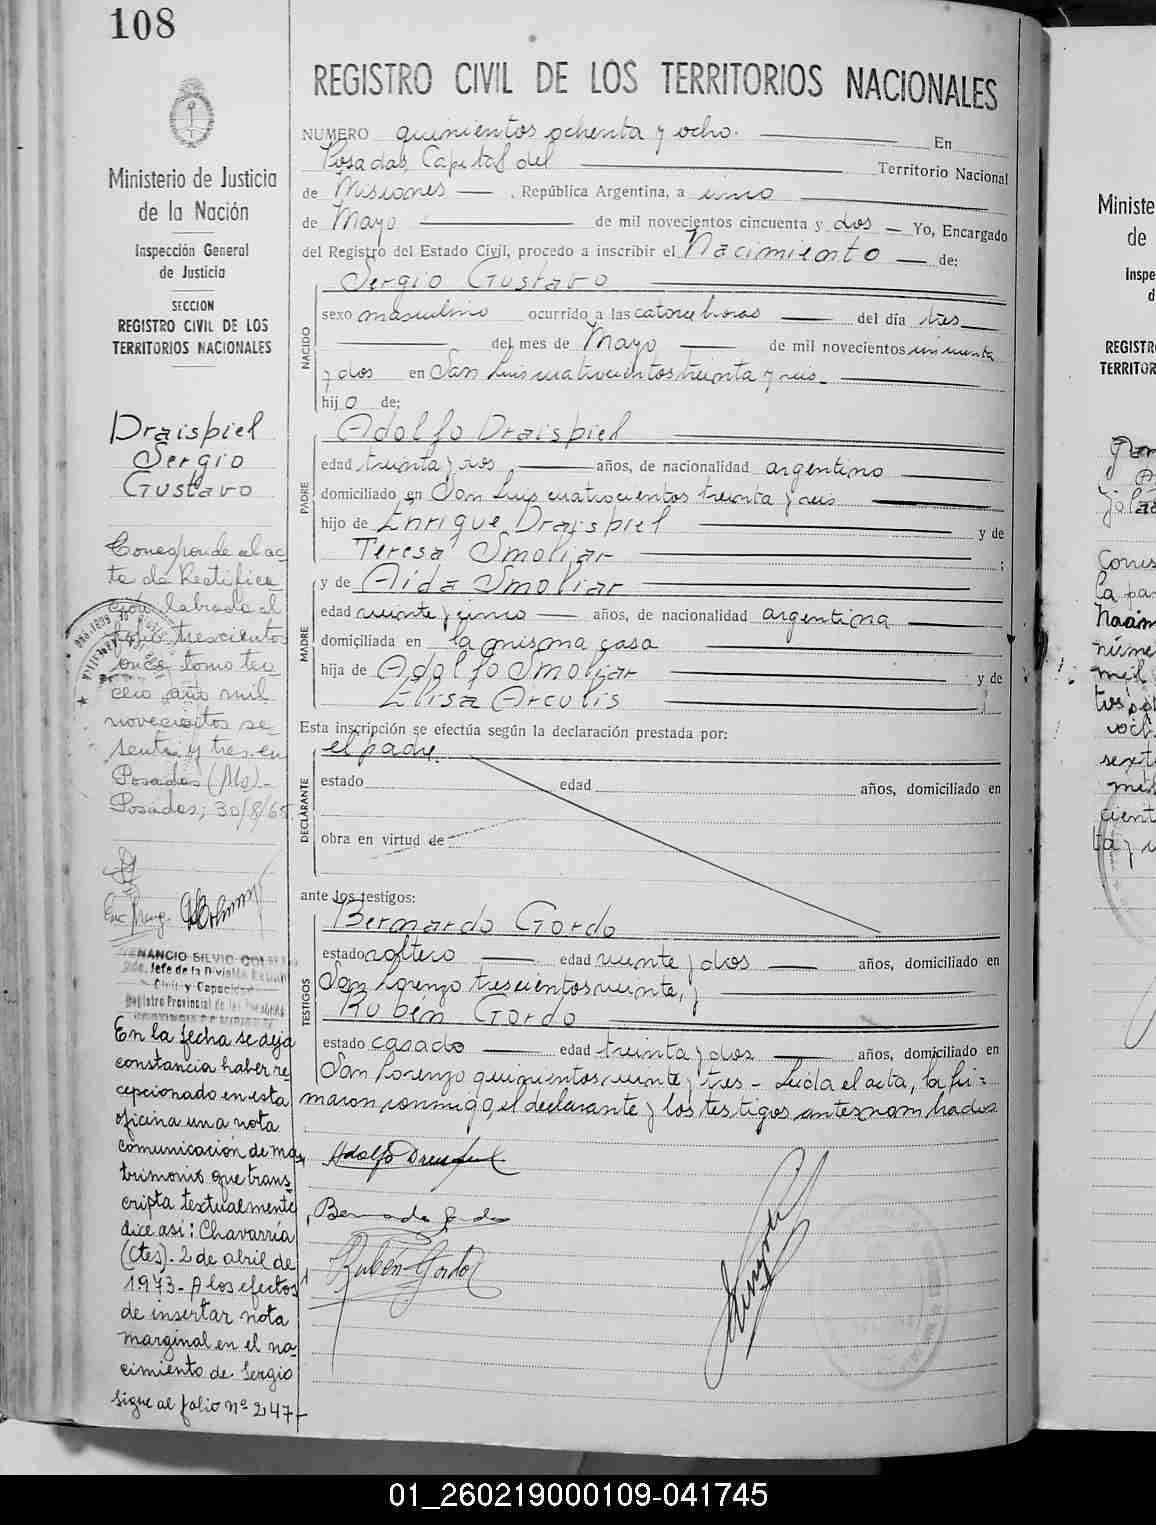 108
REGISTRO CIVIL DE LOS TERRITORIOS NACIONALES
Ministerio de Justicia
de la Nación
Inspección General
de Justicia
SECCION
REGISTRO CIVIL DE LOS
TERRITORIOS NACIONALES
NUMERO quinientos ochenta y ocho. En
Posadas, Capital del Territorio Nacional
de Misiones, República Argentina, a cinco
de Mayo de mil novecientos cincuenta y dos Yo, Encargado
del Registro del Estado Civil, procedo a inscribir el Nacimiento de:
Sergio Gustavo
NACIDO
sexo masculino ocurrido a las catorce horas del día tres
del mes de Mayo de mil novecientos cincuenta
y dos en San Luis cuatrocientos treinta y seis
hijo de:
Adolfo Draispiel
PADRE
edad treinta y dos años, de nacionalidad argentino
domiciliado en San Luis cuatrocientos treinta y seis
hijo de Enrique Draispiel y de
Teresa Smoliar ;
y de Aida Smoliar
MADRE
edad veinte y cinco años, de nacionalidad argentina
domiciliada en la misma casa
hija de Adolfo Smoliar y de
Elisa Arculis
Esta inscripción se efectúa según la declaración prestada por:
el padre
DECLARANTE
estado edad años, domiciliado en
obra en virtud de
ante los testigos:
Bernardo Gordo
TESTIGOS
estado soltero edad veinte y dos años, domiciliado en
San Lorenzo trescientos veinte, y
Rubén Gordo
estado casado edad treinta y dos años, domiciliado en
San Lorenzo quinientos veinte y tres - Leída el acta, la fir=
maron conmigo el declarante y los testigos antes nombrados
Bernardo Gordo
Rubén Gordo
Draispiel
Sergio
Gustavo
Corresponde al ac-
ta de Rectifica
ción labrada al
folio trescientos
once tomo ter-
cero año mil
novecientos se-
senta y tres en
Posadas (Ms)-
Posadas, 30/8/65
VENANCIO SILVIO
Jefe de la División
Civil y Capacidad
Registro Provincial de las Personas
En la fecha se deja
constancia haber re-
cepcionado en esta
oficina una nota
comunicación de ma-
trimonio que trans-
cripta textualmente
dice así: Chavarría
(Ctes). 2 de abril de
1973- A los efectos
de insertar nota
marginal en el na-
cimiento de Sergio
sigue al folio nº 247-
Ministe
de
Inspe
d
REGISTR
TERRITOR
01_260219000109-041745